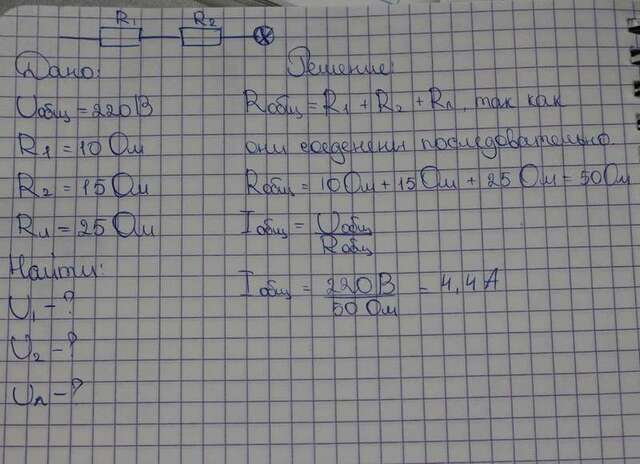 R1 R2
Дано:
Uобщ = 220 В
R1 = 10 Ом
R2 = 15 Ом
Rл = 25 Ом
Найти:
U1 - ?
U2 - ?
Uл - ?
Решение:
Rобщ = R1 + R2 + Rл, так как
они соеденены последовательно.
Rобщ = 10 Ом + 15 Ом + 25 Ом = 50 Ом
Iобщ = Uобщ
Rобщ
Iобщ = 220 В = 4,4 А
50 Ом